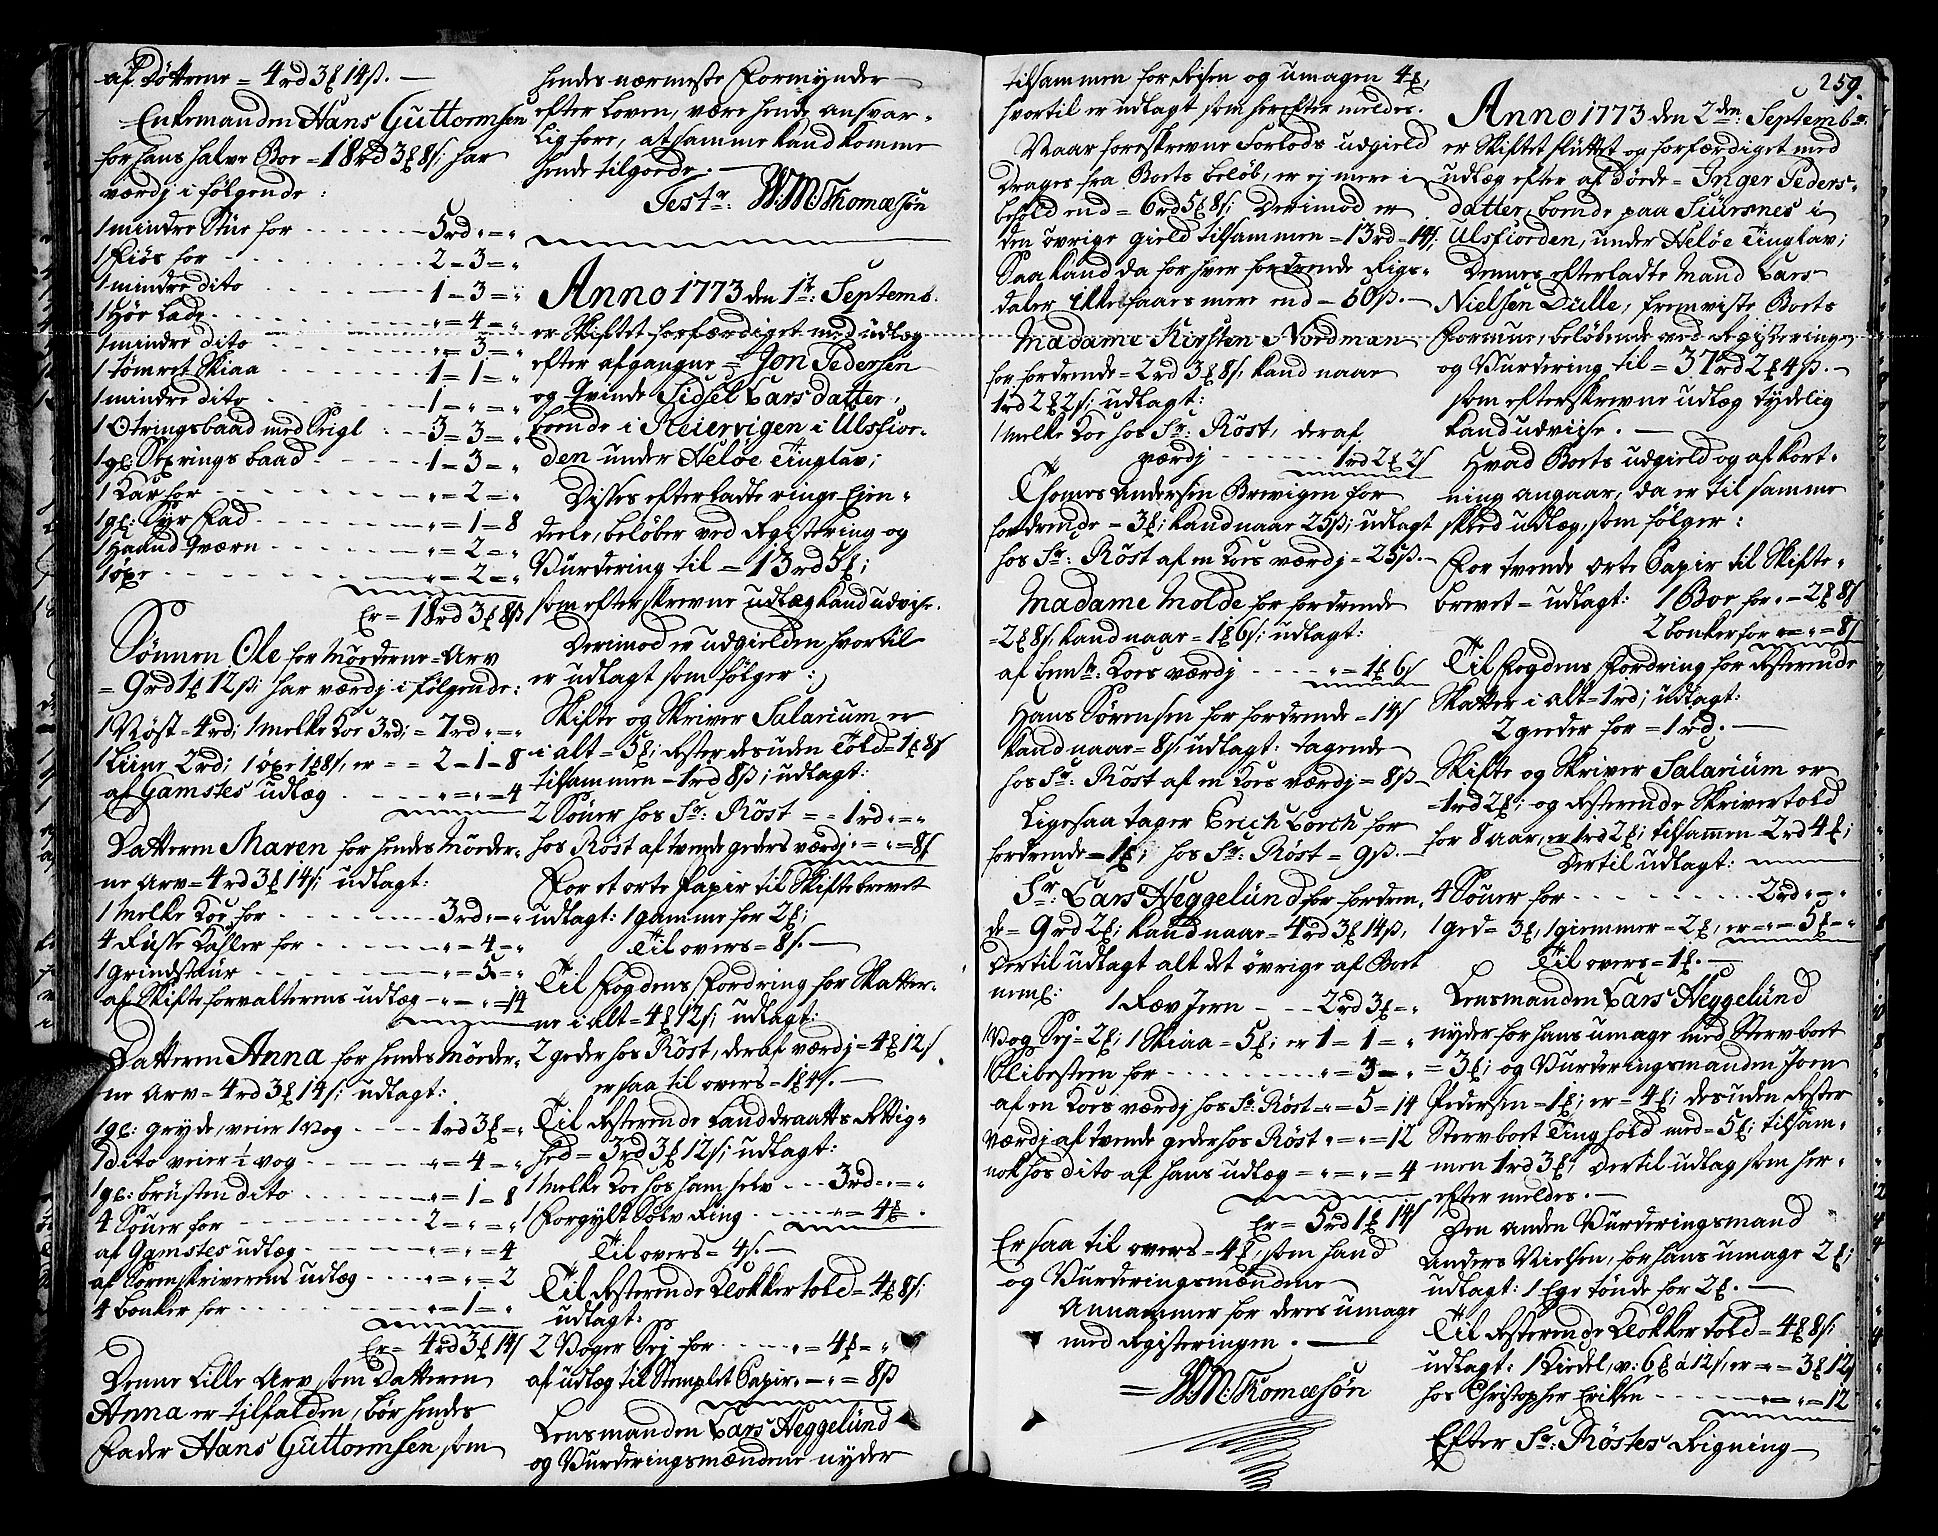 af Døttrene = 4rd 3₰ 14ß. —
Enkemanden Hans Guttormsen
for hans halve Boe = 18rd 3₰ 8ß; har
værdj i følgende:
1 mindre Stue for - - - 5rd „ = „
1 Fiøs for - - - 2 = 3 = „
1 mindre dito - - - 1 = 3 = „
1 Høe Lade - - - „ = 4 = „
1 mindre dito - - - „ = 3 = „
1 tømret Skiaa - - - 1 = 1 = „
1 mindre dito - - - 1 = „ = „
1 Otringsbaad med Seigl - - 3 = 3 = „
1 gl: Sexrings baad - - - 1 = 3 = „
1 Kar for - - - „ = 2 = „
1 gl: Syr Fad - - - „ = 1 = 8
1 Haand Qværn - - - „ = 2 = „
1 øxe - - - „ = 2 = „
Er = 18rd 3₰ 8ß
Sønnen Ole for Mødrene = Arv
= 9rd 1₰ 12ß; har værdj i følgende:
1 Nøst = 4rd; 1 Melke Koe 3rd; = 7rd „ = „
1 Liine 2rd; 1 øxe 1₰ 8ß, er = = 2 = 1 = 8
af Gamstes udlæg - - - „ = „ = 4
Datteren Maren for hendes Møder-
ne Arv = 4rd 3₰ 14ß; udlagt:
1 Melke Koe for - - - 3rd „ = „
4 Russe Kabler for - - - „ = 4 = „
1 grindstaur - - - „ = 5 = „
af Skifteforvalterens udlæg - „ = „ = 14
Datteren Anna for hendes Møder-
ne Arv = 4rd 3₰ 14ß; udlagt:
1 gl: gryde, veier 1 Vog - - - 1rd 3₰ = „
1 dito veier ½ vog - - - „ = 4 = „
1 gl: brusten dito - - - „ = 1 = 8
4 Souer for - - - 2 = „ = „
af Gamstes udlæg - - - „ = „ = 4
af Sorenskriverens udlæg - - - „ = „ = 2
4 bonker for - - - „ = 1 = „
Er = 4rd 3₰ 14ß
Denne Lille Arv som Datteren
Anna er tilfalden, bør hendes
Fader Hans Guttormsen som
hendes nærmeste Formynder
efter Loven, være hende ansvar-
lig fore, at samme kand komme
hende tilgode. —
Test: W. M: Thomæsøn
Anno 1773 den 1te Septemb.
er Skiftet forfærdiget med udlæg
efter afgangne = Jon Pedersen
og Qvinde Sidsel Larsdatter,
boende i Reiervigen i Ulsfior-
den under Heløe Tinglav;
Disses efterladte ringe Eien-
deele, beløber ved Registering og
Vurdering til = 13rd 5₰;
som efterskrevne udlæg kand udvise.
Derimod er udgielden hvortil
er udlagt som følger:
Skifte og Skriver Salarium er
i alt = 5₰; Rester desuden Told = 1₰ 8ß
tilsammen = 1rd 8ß; udlagt:
2 Souer hos Sr: Röst = = 1rd „ = „
hos Röst af tvende geders værdj „ = „ = 8ß
For et orte Papir til Skiftebrevet
udlagt: 1 gamme for 2₰;
Til overs = 8ß. —
Til Fogdens Fordring for Skatter-
ne i alt = 4₰ 12ß; udlagt:
2 geder hos Röst, deraf værdj = 4₰ 12ß
er saa til overs = 1₰ 4ß. —
Til Resterende Landdraatts Rettig-
hed = 3rd 3₰ 12ß; udlagt:
1 Melke Koe hos ham selv - - - 3rd „ = „
1 Forgylt Sølv Ring - - - „ = 4₰ = „
Til overs = 4ß. —
Til Resterende Klokker told = 4₰ 8ß;
udlagt:
2 Voger Sej for - - - „ = 4₰ = „
af udlæg til Stemplet Papir „ = „ = 8ß
Lensmanden Lars Heggelund
og Vurderingsmændene nyder
tilsammen for Reisen og umagen 4₰,
hvortil er udlagt som herefter meldes.
Naar foreskrevne Forlods udgield
drages fra Boets beløb, er ej mere i
behold end = 6rd 5₰ 8ß; Derimod er
den øvrige gield tilsammen = 13rd = 14ß;
Saa kand da for hver fordrende Rigs-
daler ikke faaes mere end = 50ß. —
Madame Kirsten Nordman
for fordrende = 2rd 3₰ 8ß, kand naae
1rd 2₰ 2ß; udlagt:
1 Melke Koe hos Sr: Röst, deraf
værdj - - - 1rd 2₰ 2ß
Thomes Andersen Brevigen for
fordrende = 3₰; kand naae 25ß; udlagt
hos Sr: Röst af en Koes værdj = 25ß. —
Madame Molde for fordrende
= 2₰ 8ß, kand naae = 1₰ 6ß; udlagt:
af bemte: Koes værdj - - - „ = 1₰ 6ß
Hans Sørensen for fordrende = 14ß
kand naae = 8ß udlagt: tagende
hos Sr: Röst af en Koes værdj = 8ß —
Ligesaa tager Erich Lorch for
fordrende = 1₰; hos Sr: Röst = 9ß. —
Sr: Lars Heggelund for fordren-
de = 9rd 2₰; kand naae = 4rd 3₰ 14ß,
Dertil udlagt alt det øvrige af Boet
neml: 1 Ræv Jern - - - 2rd 3₰ = „
1 Vog Sej = 2₰; 1 Skiaa = 5₰; er 1 = 1 = „
1 Slibesteen for - - - „ = 3 = „
af en Koes værdj hos Sr: Röst „ = 5 = 14
værdj af tvende geder hos Röst „ = „ = 12
nok hos dito af hans udlæg = „ = „ = 4
Er = 5rd 1₰ 14ß
Er saa til overs = 4₰, som hand
og Vurderingsmændene
Annammer for deres umage
med Registeringen. —
= W. M: Thomæsøn
259.
Anno 1773 den 2den: Septemb:
er Skiftet sluttet og forfærdiget med
udlæg efter afdøde = Inger Peders-
datter, boende paa Siursnes i
Ulsfiorden, under Heløe Tinglav;
Dennes efterladte Mand Lars
Nielsen Dülle, fremviste Boets
Formue, beløbende ved Registering
og Vurdering til = 37rd 2₰ 4ß. —
som efterskrevne udlæg tydelig
kand udvise. —
Hvad Boets udgield og afkort-
ning angaar, da er til samme
skeed udlæg, som følger:
For tvende orte Papir til Skifte-
brevet = udlagt: 1 Boe for „ = 2₰ 8ß
2 bonker for „ = „ = 8ß
Til Fogdens Fordring for Resterende
Skatter i alt = 1rd; udlagt:
2 geder for = 1rd. —
Skifte og Skriver Salarium er
= 1rd 2₰; og Resterende Skrivertold
for 8 aar, er 1rd 2₰; tilsammen = 2rd 4₰;
Dertil udlagt:
4 Souer for - - - 2rd „ = „
1 ged = 3₰, 1 giemmer = 2₰, er = „ = 5₰ = „
Til overs = 1₰. —
Lensmanden Lars Heggelund
nyder for hans umage med Stervboet
= 3₰; og Vurderingsmanden Joen
Pedersen = 1₰; er = 4₰; desuden Rester
Stervboet Tinghold med = 5₰; tilsam-
men 1rd 3₰; Dertil udlag som her-
efter meldes. —
Den anden Vurderingsmand
Anders Nielsen, for hans umage 2₰;
udlagt: 1 Ege tønde for 2₰. —
Til Resterende Klokker told = 4₰ 8ß;
udlagt: 1 Kiedel, v: 6₰ á 12ß, er „ = 3₰ 12ß
hos Christopher Eriksen - - - „ = „ = 12
Efter Sr: Röstes Rigning